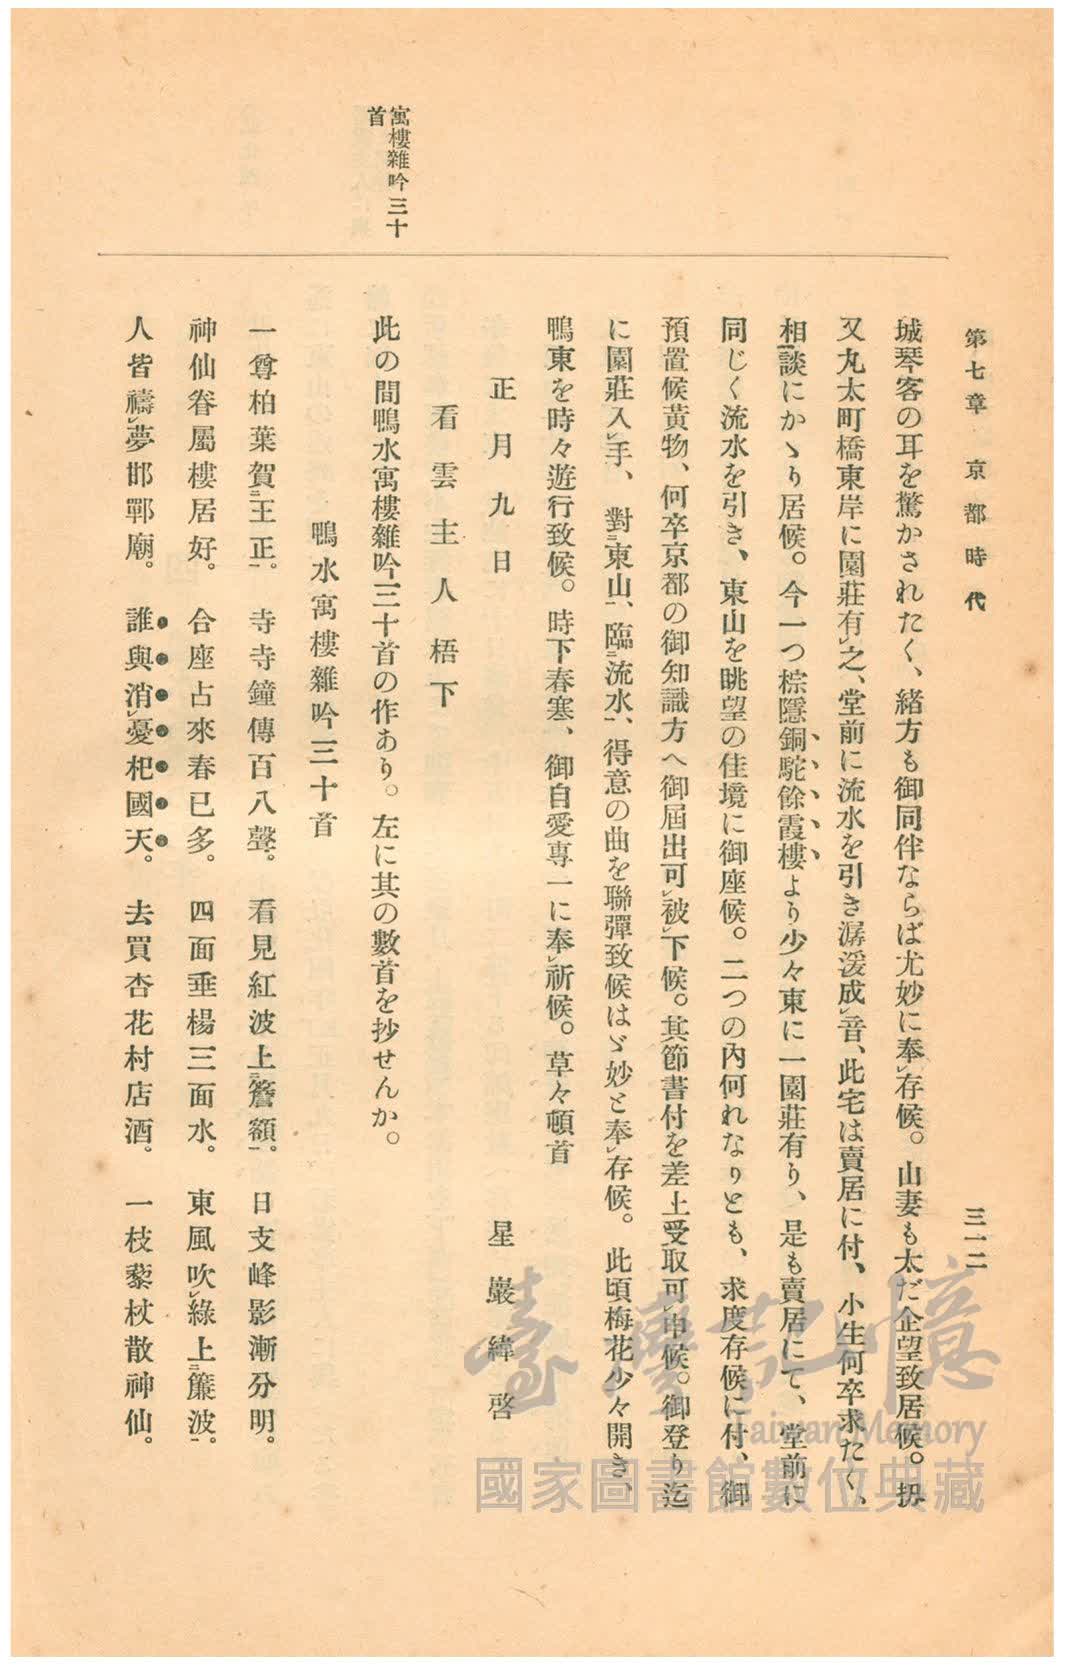 第七章 京都時代
三一二
寓樓雜吟三十
首
城琴客の耳を驚かされたく、緒方も御同伴ならば尤妙に奉レ存候。山妻も太だ企望致居候。扨
又丸太町橋東岸に園莊有レ之、堂前に流水を引き潺湲成レ音、此宅は賣居に付、小生何卒求たく、
相談にかゝり居候。今一つ棕隱銅駝餘霞樓より少々東に一園莊有り、是も賣居にて、堂前に
同じく流水を引き、東山を眺望の佳境に御座候。二つの內何れなりとも、求度存候に付、御
預置候黃物、何卒京都の御知識方へ御屆出可レ被レ下候。其節書付を差上受取可レ申候。御登り迄
に園莊入レ手、對二東山一、臨二流水一、得意の曲を聯彈致候はゞ妙と奉レ存候。此頃梅花少々開き、
鴨東を時々遊行致候。時下春寒、御自愛專一に奉レ祈候。草々頓首
正月九日 星巖緯啓
看雲主人梧下
此の間鴨水寓樓雜吟三十首の作あり。左に其の數首を抄せんか。
鴨水寓樓雜吟三十首
一尊柏葉賀二王正一。寺寺鐘傳百八聲。看見紅波上二簷額一。日支峰影漸分明。
神仙眷屬樓居好。合座占來春已多。四面垂楊三面水。東風吹レ綠上二簾波一。
人皆禱レ夢邯鄲廟。誰與消レ憂杞國天。去買杏花村店酒。一枝藜杖散神仙。
臺灣記憶
Taiwan Memory
國家圖書館數位典藏